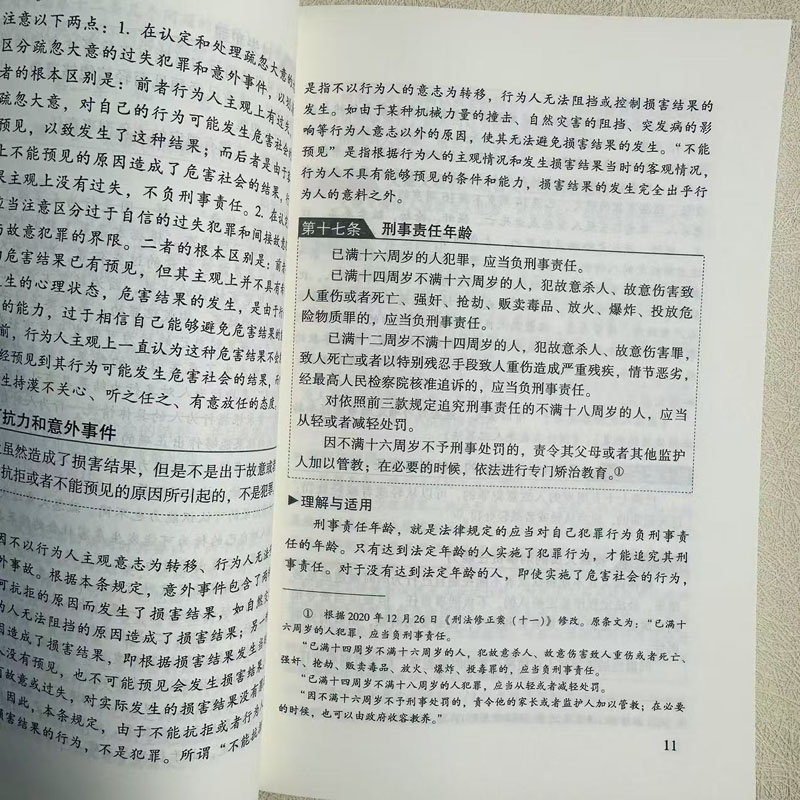 注意以下两点：1. 在认定和处理疏忽大意的
区分疏忽大意的过失犯罪和意外事件，以
者的根本区别是：前者行为人主观上有过失，
疏忽大意，对自己的行为可能发生危害社会
预见，以致发生了这种结果；而后者是由于
上不能预见的原因造成了危害社会的结果，
主观上没有过失，不负刑事责任。2. 在认
应当注意区分过于自信的过失犯罪和间接故意
与故意犯罪的界限。二者的根本区别是：前
危害结果已有预见，但其主观上并不具有
生的心理状态，危害结果的发生，是由于
的能力，过于相信自己能够避免危害结果的
前，行为人主观上一直认为这种危害结果不会
经预见到其行为可能发生危害社会的结果，
生持漠不关心、听之任之、有意放任的态度。
抗力和意外事件
虽然造成了损害结果，但是不是出于故意或
抗拒或者不能预见的原因所引起的，不是犯罪。
因不以行为人主观意志为转移、行为人无法
外事故。根据本条规定，意外事件包含了两
可抗拒的原因而发生了损害结果，如自然
为人无法阻挡的原因造成了损害结果；另
因造成了损害结果，即根据损害结果发生当
人没有预见，也不可能预见会发生损害结
有故意或过失，对实际发生的损害结果没有
因此，本条规定，由于不能抗拒或者行为
损害结果的行为，不是犯罪。所谓“不能抗
是指不以行为人的意志为转移，行为人无法阻挡或控制损害结果的
发生。如由于某种机械力量的撞击、自然灾害的阻挡、突发病的影
响等行为人意志以外的原因，使其无法避免损害结果的发生。“不能
预见”是指根据行为人的主观情况和发生损害结果当时的客观情况，
行为人不具有能够预见的条件和能力，损害结果的发生完全出乎行
为人的意料之外。
第十七条 刑事责任年龄
已满十六周岁的人犯罪，应当负刑事责任。
已满十四周岁不满十六周岁的人，犯故意杀人、故意伤害致
人重伤或者死亡、强奸、抢劫、贩卖毒品、放火、爆炸、投放危
险物质罪的，应当负刑事责任。
已满十二周岁不满十四周岁的人，犯故意杀人、故意伤害罪，
致人死亡或者以特别残忍手段致人重伤造成严重残疾，情节恶劣，
经最高人民检察院核准追诉的，应当负刑事责任。
对依照前三款规定追究刑事责任的不满十八周岁的人，应当
从轻或者减轻处罚。
因不满十六周岁不予刑事处罚的，责令其父母或者其他监护
人加以管教；在必要的时候，依法进行专门矫治教育。①
▶理解与适用
刑事责任年龄，就是法律规定的应当对自己犯罪行为负刑事责
任的年龄。只有达到法定年龄的人实施了犯罪行为，才能追究其刑
事责任。对于没有达到法定年龄的人，即使实施了危害社会的行为，
① 根据2020年12月26日《刑法修正案（十一）》修改。原条文为：“已满十
六周岁的人犯罪，应当负刑事责任。
“已满十四周岁不满十六周岁的人，犯故意杀人、故意伤害致人重伤或者死亡、
强奸、抢劫、贩卖毒品、放火、爆炸、投毒罪的，应当负刑事责任。
“已满十四周岁不满十八周岁的人犯罪，应当从轻或者减轻处罚。
“因不满十六周岁不予刑事处罚的，责令他的家长或者监护人加以管教；在必要
的时候，也可以由政府收容教养。”
11